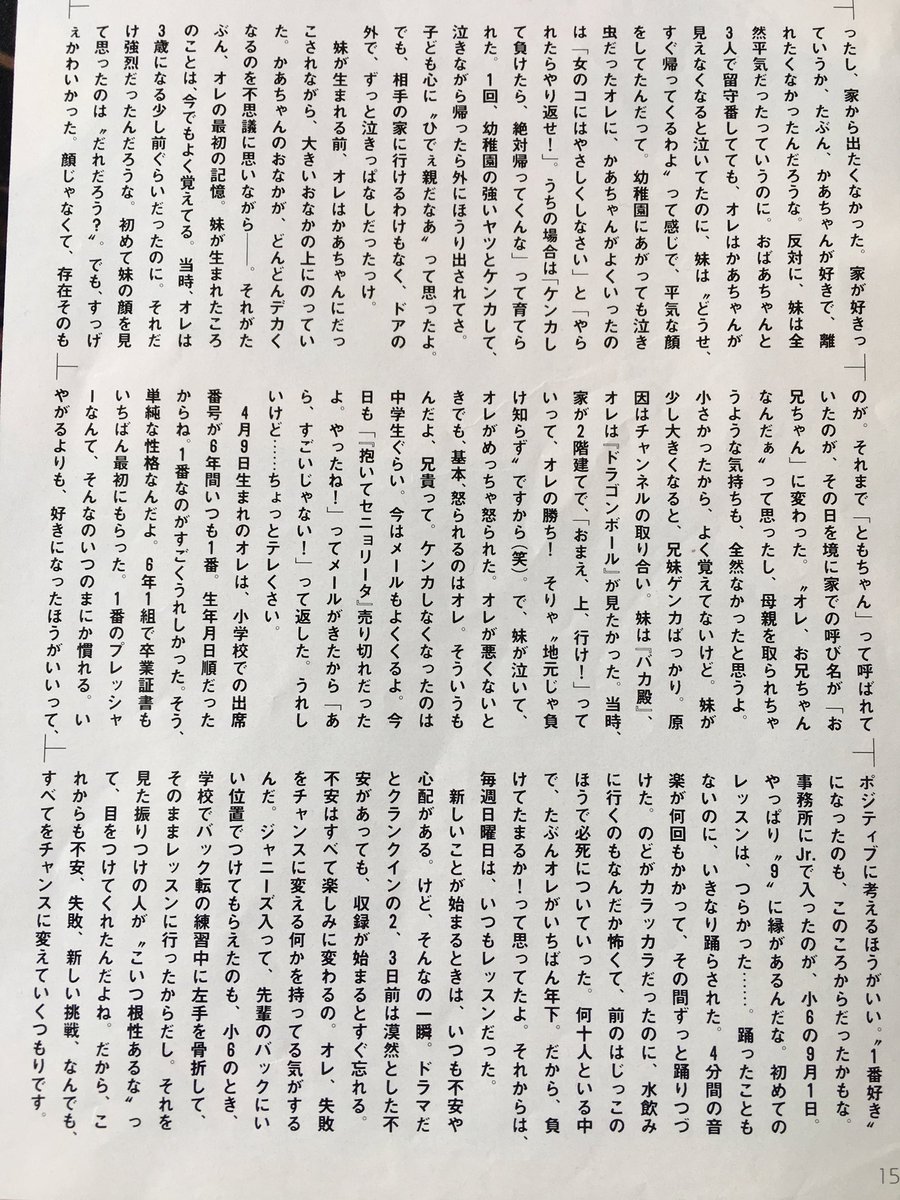 ったし、家から出たくなかった。家が好きっ
ていうか、たぶん、かあちゃんが好きで、離
れたくなかったんだろうな。反対に、妹は全
然平気だったっていうのに。おばあちゃんと
3人で留守番してても、オレはかあちゃんが
見えなくなると泣いてたのに、妹は〝どうせ、
すぐ帰ってくるわよ〟って感じで、平気な顔
をしてたんだって。幼稚園にあがっても泣き
虫だったオレに、かあちゃんがよくいったの
は「女のコにはやさしくしなさい」と「やら
れたらやり返せ！」。うちの場合は「ケンカし
て負けたら、絶対帰ってくんな」って育てら
れた。1回、幼稚園の強いヤツとケンカして、
泣きながら帰ったら外にほうり出されてさ。
子ども心に〝ひでぇ親だなあ〟って思ったよ。
でも、相手の家に行けるわけもなく、ドアの
外で、ずっと泣きっぱなしだったっけ。
妹が生まれる前、オレはかあちゃんにだっ
こされながら、大きいおなかの上にのってい
た。かあちゃんのおなかが、どんどんデカく
なるのを不思議に思いながら――。それがた
ぶん、オレの最初の記憶。妹が生まれたころ
のことは、今でもよく覚えてる。当時、オレは
3歳になる少し前ぐらいだったのに。それだ
け強烈だったんだろうな。初めて妹の顔を見
て思ったのは〝だれだろう？〟。でも、すっげ
ぇかわいかった。顔じゃなくて、存在そのも
のが。それまで「ともちゃん」って呼ばれて
いたのが、その日を境に家での呼び名が「お
兄ちゃん」に変わった。〝オレ、お兄ちゃん
なんだぁ〟って思ったし、母親を取られちゃ
うような気持ちも、全然なかったと思うよ。
小さかったから、よく覚えてないけど。妹が
少し大きくなると、兄妹ゲンカばっかり。原
因はチャンネルの取り合い。妹は『バカ殿』、
オレは『ドラゴンボール』が見たかった。当時、
家が2階建てで、「おまえ、上、行け！」って
いって、オレの勝ち！　そりゃ〝地元じゃ負
け知らず〟ですから（笑）。で、妹が泣いて、
オレがめっちゃ怒られた。オレが悪くないと
きでも、基本、怒られるのはオレ。そういうも
んだよ、兄貴って。ケンカしなくなったのは
中学生ぐらい。今はメールもよくくるよ。今
日も「『抱いてセニョリータ』売り切れだった
よ。やったね！」ってメールがきたから「あ
ら、すごいじゃない！」って返した。うれし
いけど……ちょっとテレくさい。
4月9日生まれのオレは、小学校での出席
番号が6年間いつも1番。生年月日順だった
からね。1番なのがすごくうれしかった。そう、
単純な性格なんだよ。6年1組で卒業証書も
いちばん最初にもらった。1番のプレッシャ
ーなんて、そんなのいつのまにか慣れる。い
やがるよりも、好きになったほうがいいって、
ポジティブに考えるほうがいい。〝1番好き〟
になったのも、このころからだったかもな。
事務所にJr.で入ったのが、小6の9月1日。
やっぱり〝9〟に縁があるんだな。初めての
レッスンは、つらかった……。踊ったことも
ないのに、いきなり踊らされた。4分間の音
楽が何回もかかって、その間ずっと踊りつづ
けた。のどがカラッカラだったのに、水飲み
に行くのもなんだか怖くて、前のはじっこの
ほうで必死についていった。何十人といる中
で、たぶんオレがいちばん年下。だから、負
けてたまるか！って思ってたよ。それからは、
毎週日曜日は、いつもレッスンだった。
新しいことが始まるときは、いつも不安や
心配がある。けど、そんなの一瞬。ドラマだ
とクランクインの2、3日前は漠然とした不
安があっても、収録が始まるとすぐ忘れる。
不安はすべて楽しみに変わるの。オレ、失敗
をチャンスに変える何かを持ってる気がする
んだ。ジャニーズ入って、先輩のバックにい
い位置でつけてもらえたのも、小6のとき、
学校でバック転の練習中に左手を骨折して、
そのままレッスンに行ったからだし。それを
見た振りつけの人が〝こいつ根性あるな〟っ
て、目をつけてくれたんだよね。だから、こ
れからも不安、失敗、新しい挑戦、なんでも、
すべてをチャンスに変えていくつもりです。
15